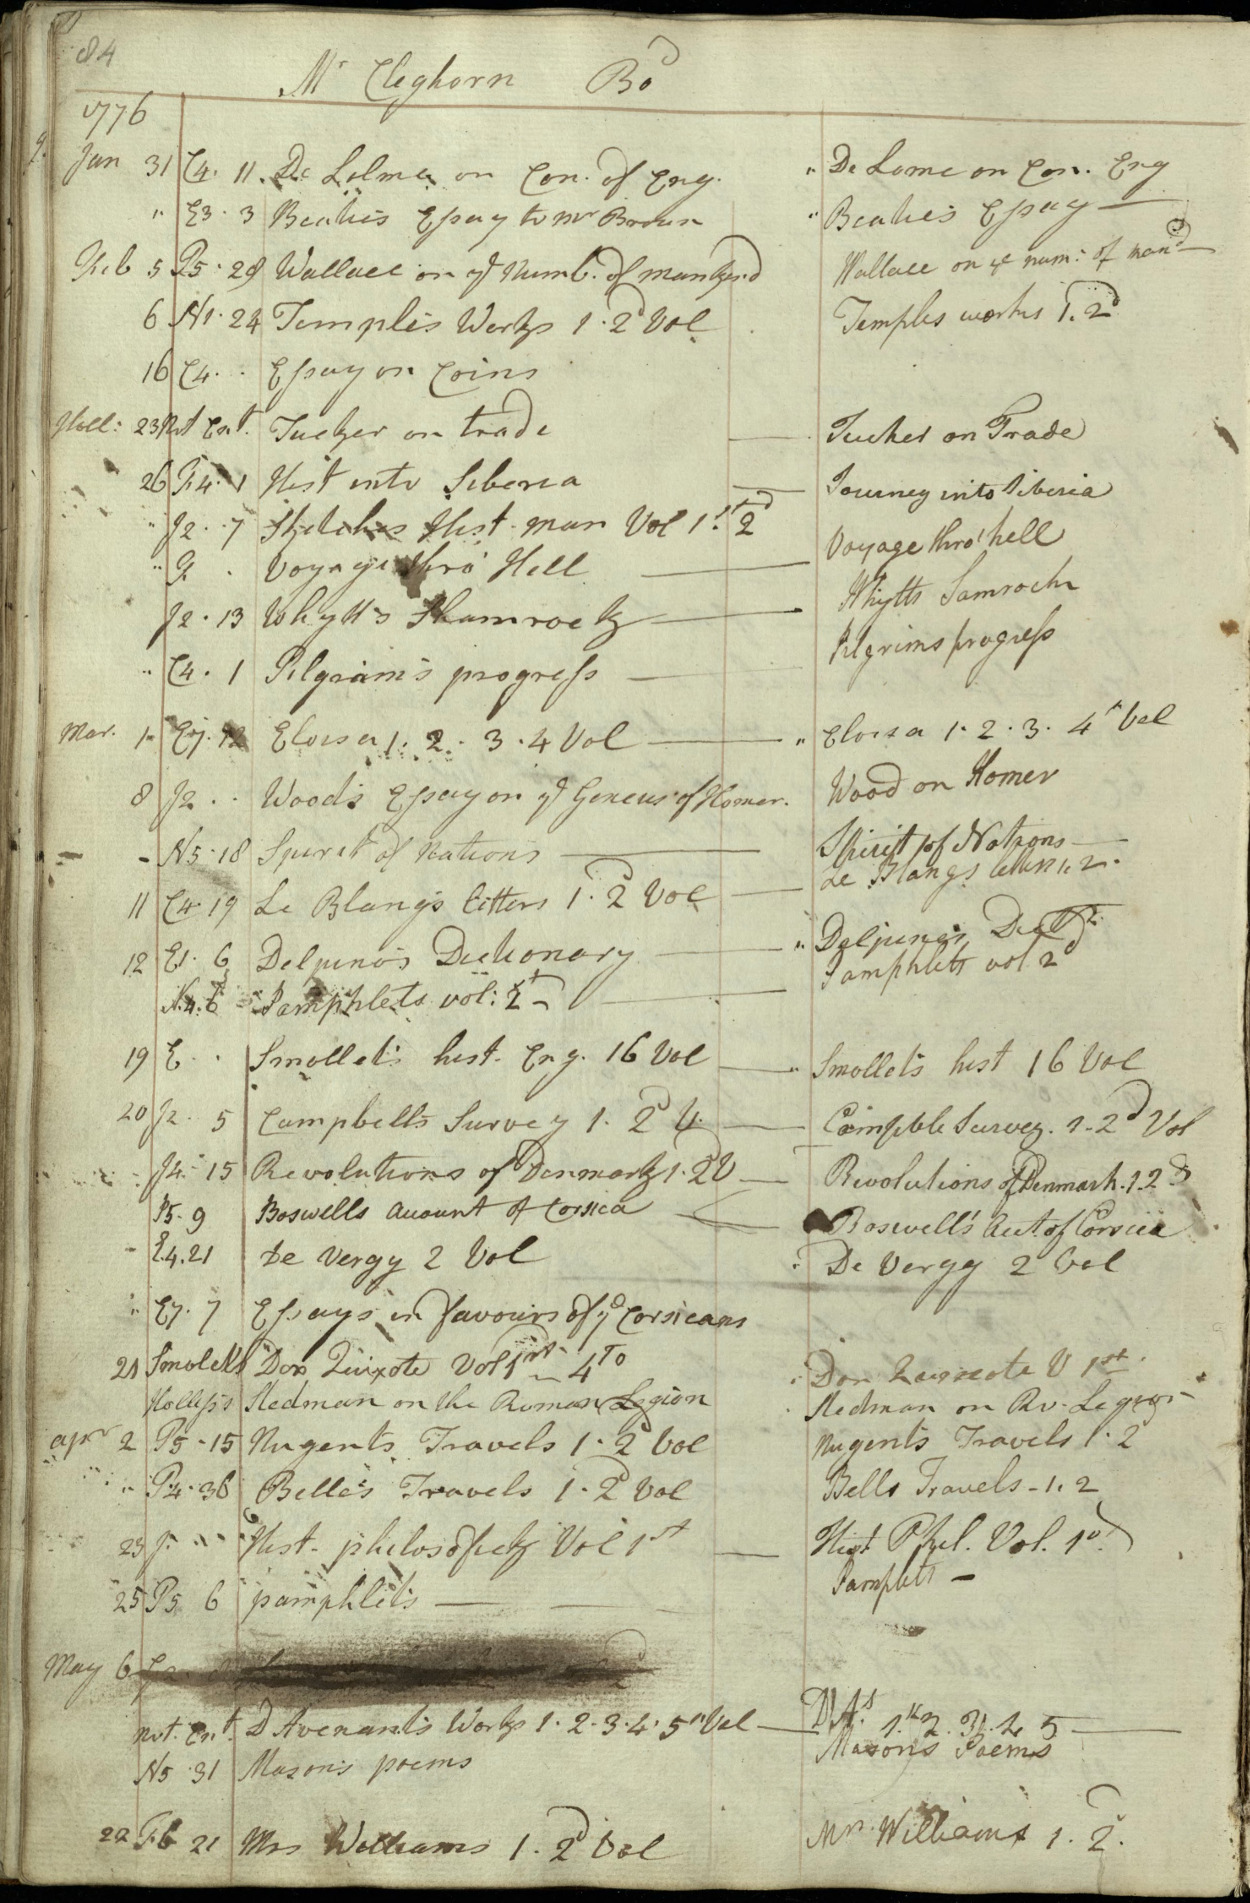 84
Mr Cleghorn Bo
1776
Jan 31 C4. 11. De Lolme on Con. of Eng. " De Lome on Con. Eng
" E3. 3 Beatties Essay to Mr Broun " Beaties Essay —
Feb 5 P5. 28 Wallace on ye Numb. of mankind Wallace on ye num: of mand —
6 N1. 24 Temple's Works 1. 2d Vol Temples works 1. 2d
16 C4. . Essay on Coins
23 Not Ent. Tucker on trade — Tucker on Trade
26 F4. 1 Hist into Siberia — Journey into Siberia
" J2. 7 Sketches Hist. man Vol 1st 2d
" Voyage thro' Hell — Voyage thro' hell
J2. 13 Whytt's Shamrock — Whytts Samrock
" C4. 1 Pilgrim's progress — Pilgrims progress
Mar. 1 E7. 12 Eloisa 1. 2. 3. 4 Vol — " Eloisa 1. 2. 3. 4th Vol
8 J2. . Wood's Essay on ye Geneus of Homer. Wood on Homer
- N5. 18 Spirit of Nations — Spirit of Nations —
11 C4 19 Le Blang's letters 1. 2d Vol — Le Blangs letters 1. 2.
12 E1. 6 Delpino's Dictionary — " Delpino's Dict
N.4. 6 Pamphlets vol: 2d — Pamphlets vol 2d
19 E . . Smollet's hist. Eng. 16 Vol — " Smollet's hist 16 Vol
20 J2. 5 Campbell's Survey 1. 2d V. — Campble Survey. 1. 2d Vol
J4. 15 Revolutions of Denmark 1. 2d V — Revolutions of Denmark. 1. 2d
P5. 9 Boswells account of Corsica Boswell's Act of Corsica
E.4. 21 De Vergy 2 Vol De Vergy 2 Vol
" E7. 7 Essays in favours of ye Corsicans
21 Smolets Don Quixote Vol 1st 4to Don Quixote V 1st
on the Roman Legion on Ro. Legion
apr 2 P5. 15 Nugents Travels 1. 2d Vol Nugent's Travels 1. 2
" P4. 38 Belle's Travels 1. 2d Vol Bells Travels - 1. 2
23 J. Hist. Vol 1st — Hist Phil. Vol. 1st
25 P5 6 pamphlets — Pamphlets —
May 6
Not. Ent. D'Avenant's Works 1. 2. 3. 4. 5th Vol — D'A's 1. 2. 3. 4. 5 —
N5. 31 Mason's poems Mason's Poems
22 F6 21 Mrs Williams 1. 2d Vol Mrs. Williams 1. 2d.